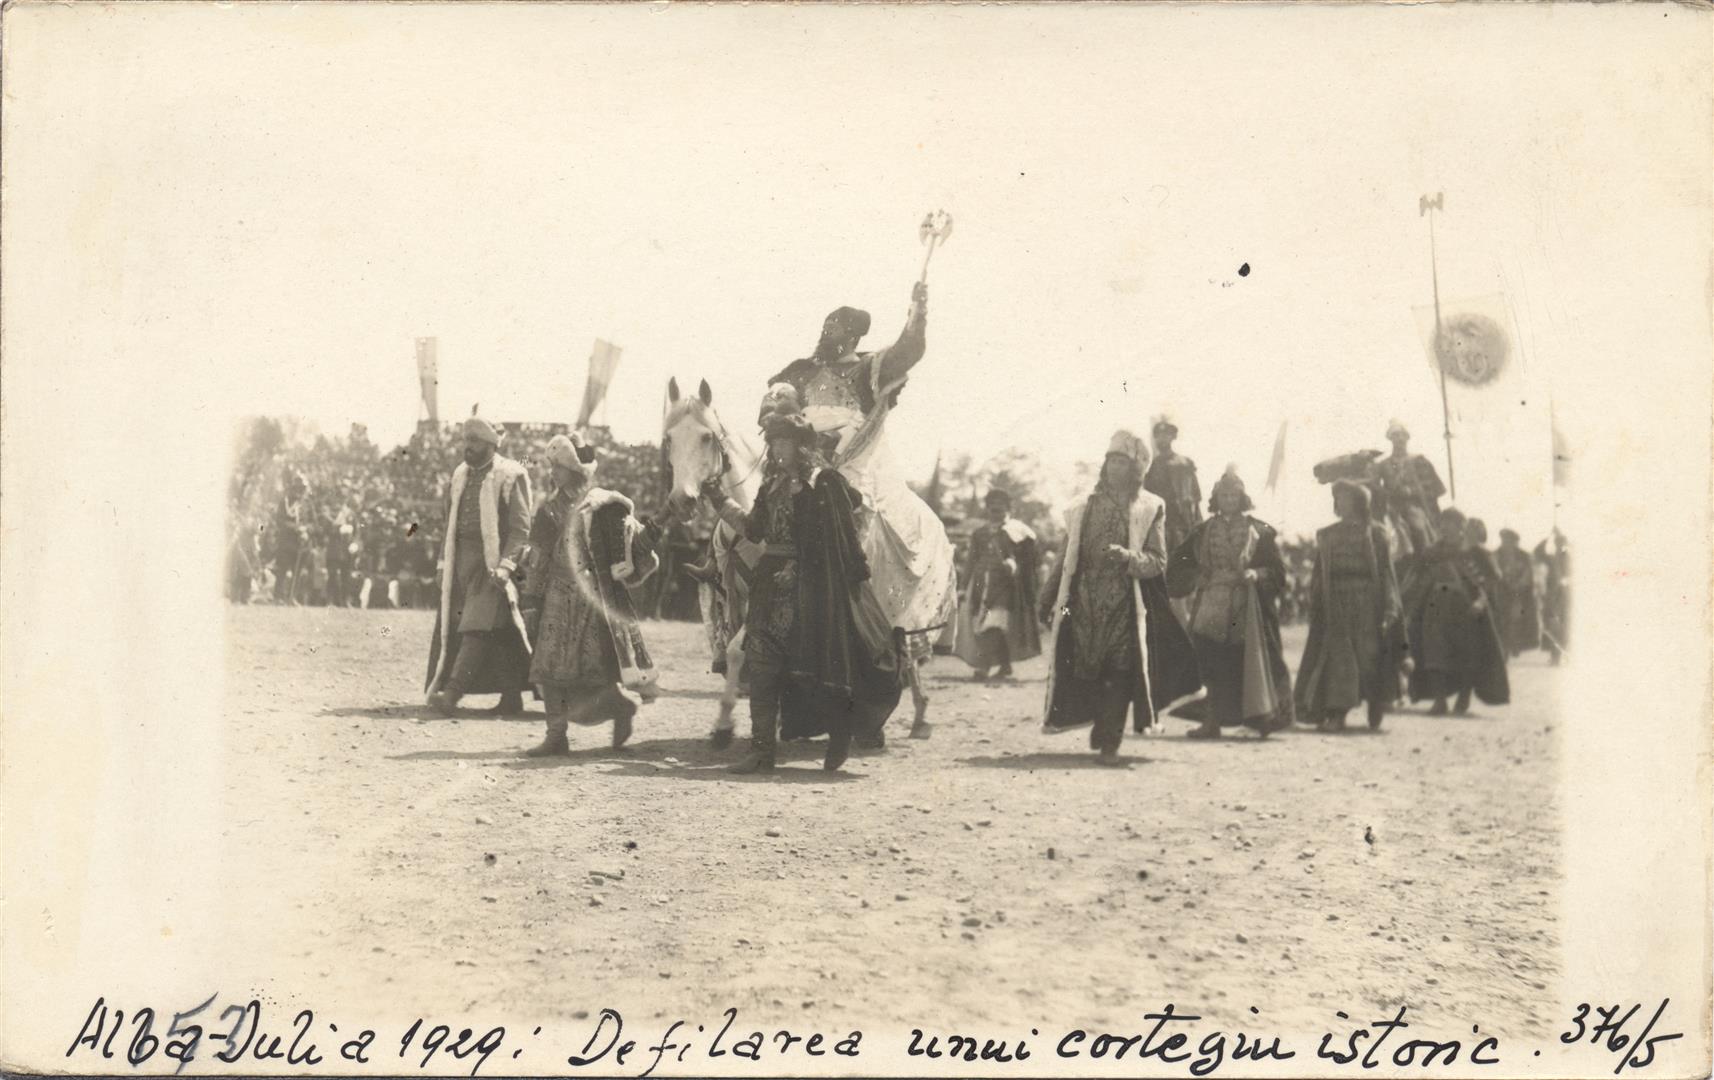 Alba-Iulia 1929: Defilarea unui cortegiu istoric. 376/5
53